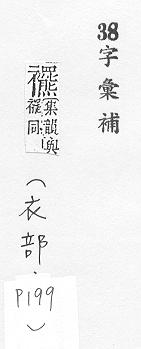 38字彙補
集韻與
同
(衣部.
P199)